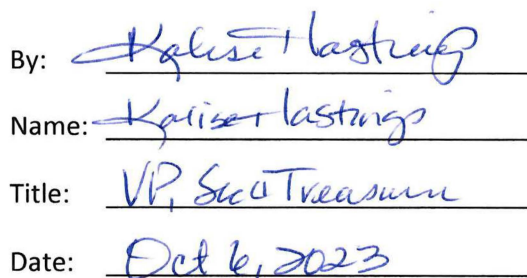 By: Kalise Hastings
Name: Kalise Hastings
Title: VP, Sec & Treasurer
Date: Oct 6, 2023